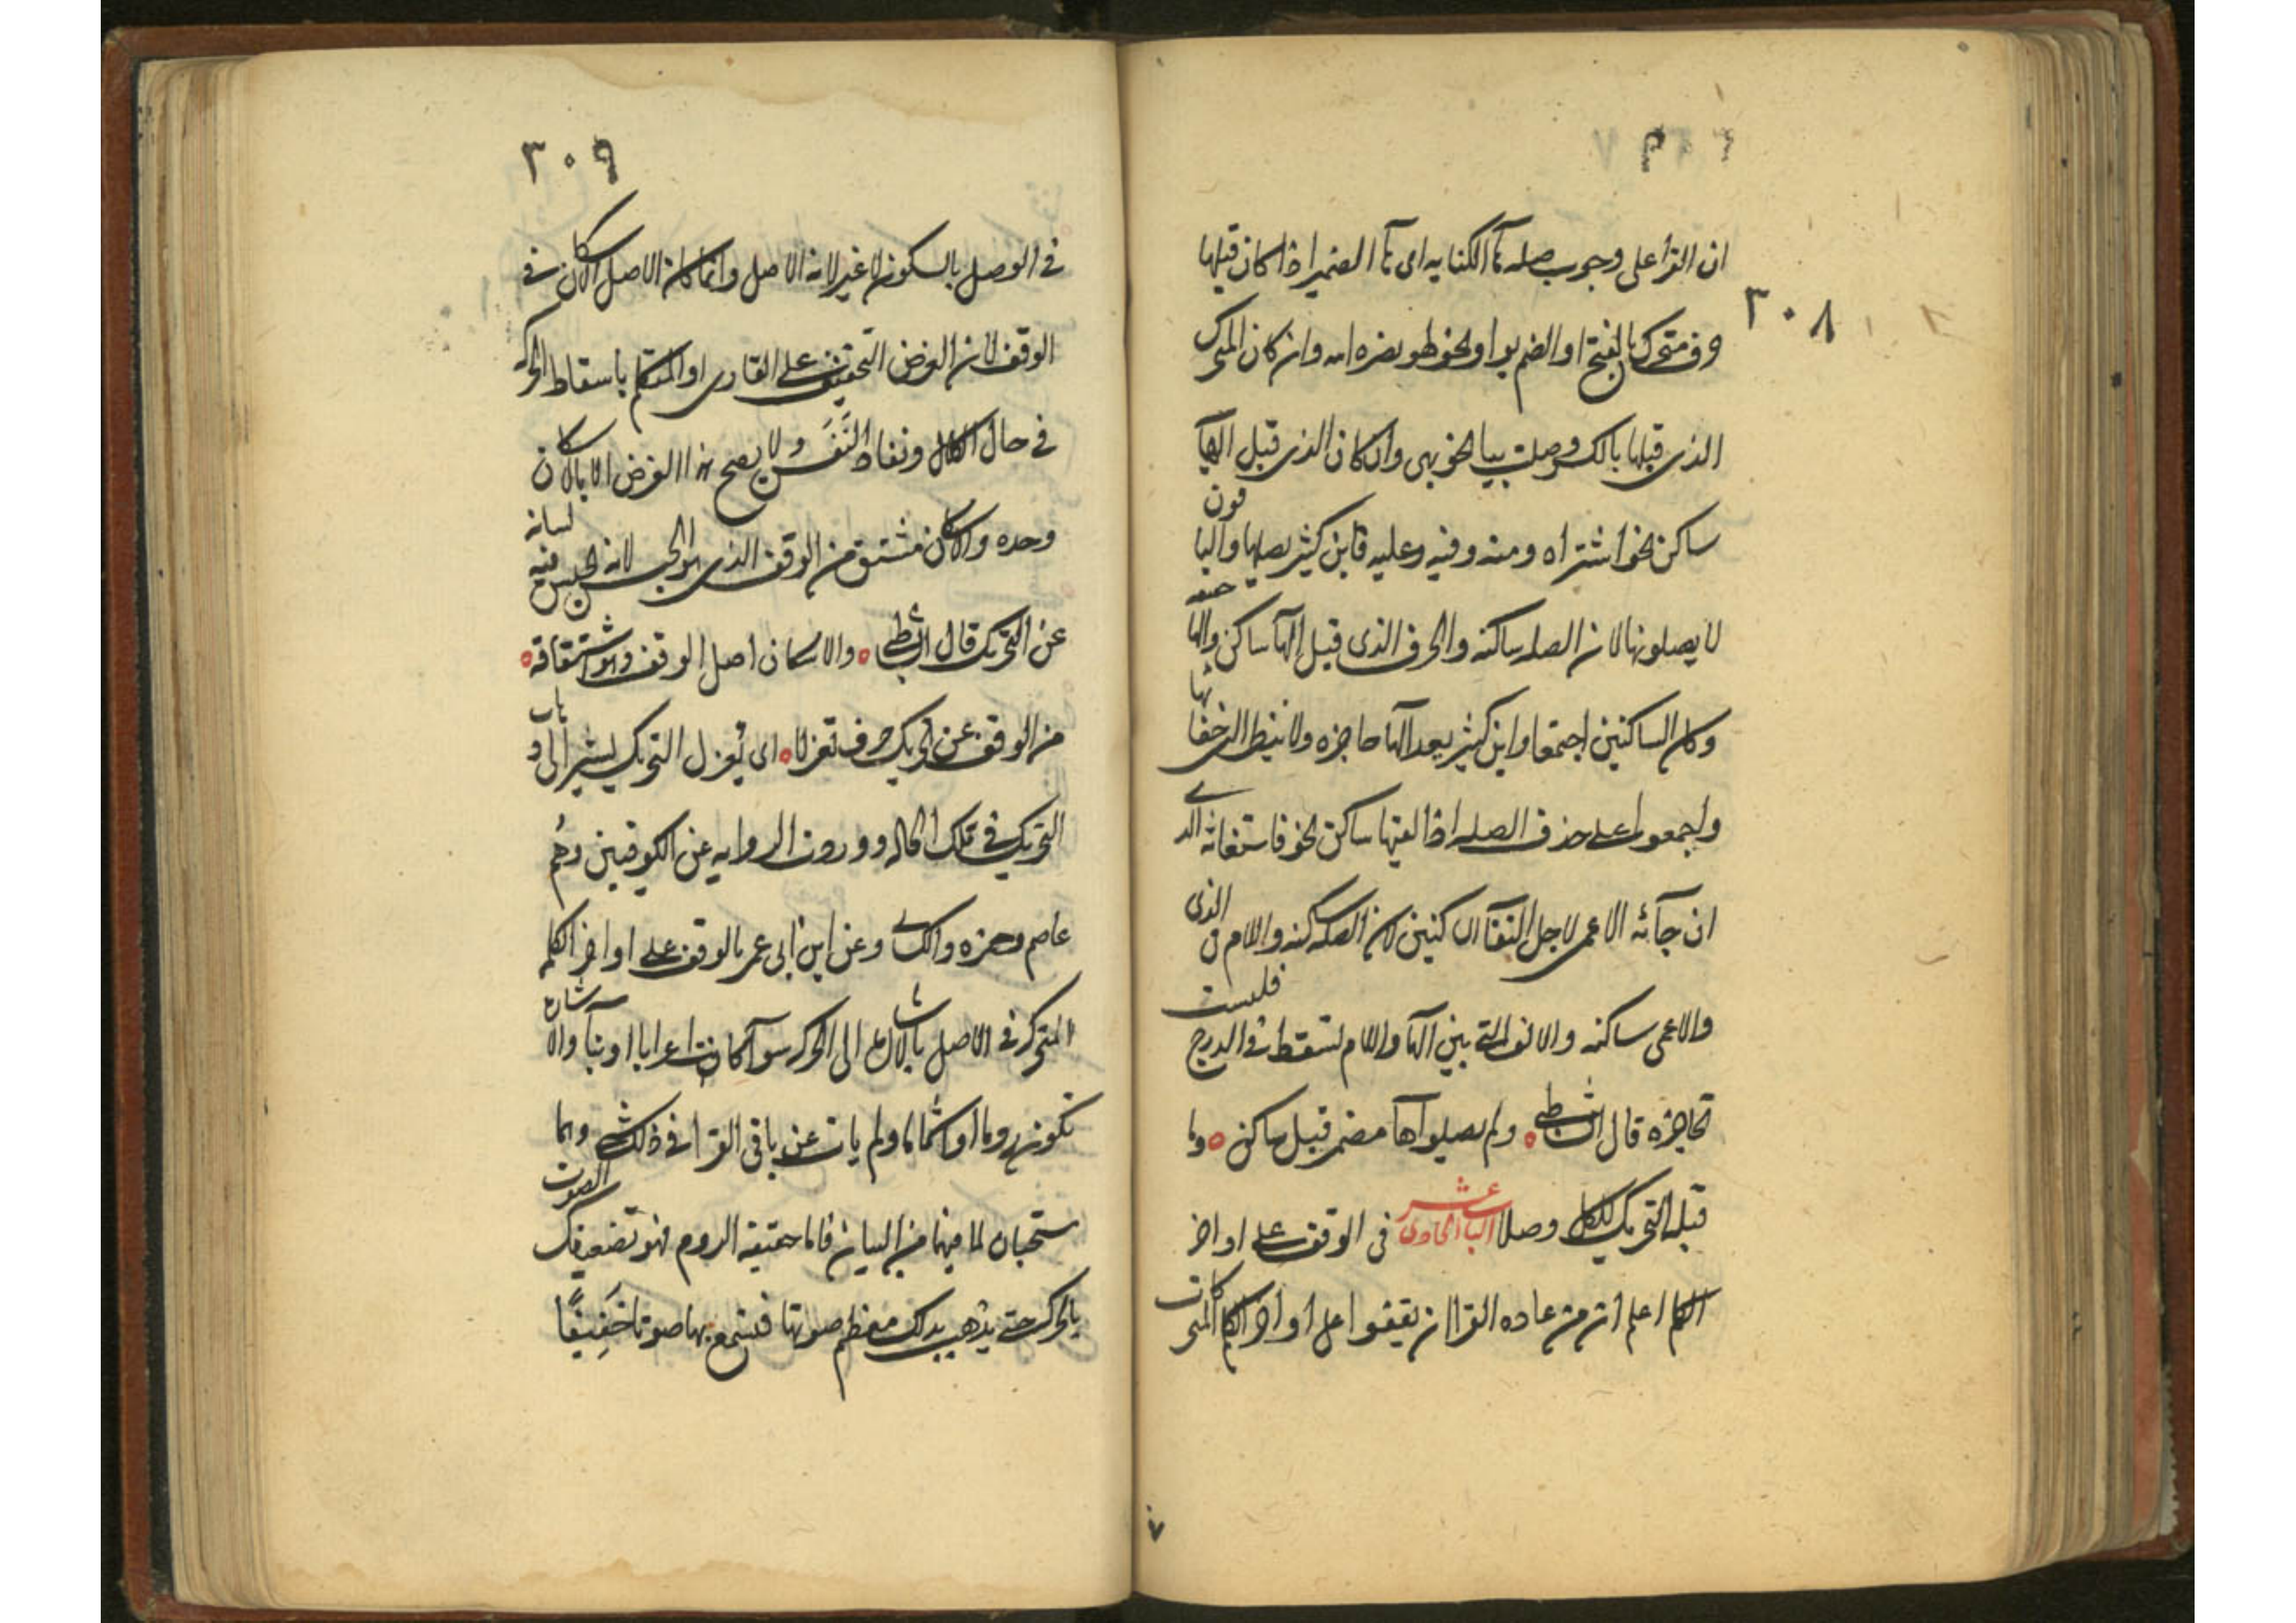 ٣٠٨
ان القرآ على وجوب صله هآ الكنايه اى هآ الضمير اذا كان قبلها
حرف متحرك بالفتح او الضم بواو نحو لهو ينصره الله وان كان المتحرك
الذى قبلها بالكسر وصلت بيا نحو بهى وان كان الذى قبل الهآ
ساكن نحو اشتراه ومنه وفيه وعليه فابن كثير يصلها والباقون
لا يصلونها لان الصله ساكنه والحرف الذى قبل الهآ ساكن والها خفيه
وكان الساكنين اجتمعا وابن كثير يعد الها حاجزه ولا ينظر الى خفائها
واجمعوا على حذف الصله اذا لقيها ساكن نحو فاستغاثه الذى
ان جآئه الاعمى لاجل التقآ الساكنين لان الصله ساكنه واللام من الذى
والاعمى ساكنه والالف التى بين الها واللام تسقط فى الدرج فليست
بحاجزه قال الشاطبى ولم يصلوا ها مضمر قبل ساكن وما
قبله التحريك للكل وصلا الباب الحادى عشر فى الوقف على اواخر
الكلم اعلم ان من عاده القرا ان يقفوا على اواخر الكلم المتحركات
٣٠٩
فى الوصل بالسكون لا غير لانه الاصل وانما كان الاصل الاسكان فى
الوقف لان الغرض التخفيف على القارى او المتكلم باسقاط الحركه
فى حال الكلال ونفاد النَّفَس ولا يصح هذا الغرض الا بالاسكان
وحده والاسكان مشتق من الوقف الذى هو الحبس لانه يحبس لسانه فيه
عن التحريك قال الشاطبى والاسكان اصل الوقف وهو اشتقاقه
من الوقف عن تحريك حرف تعزلا اى يُعزل التحريك ليشير الى ذهاب
التحريك فى تلك الحاله ووردت الروايه عن الكوفيين وهُم
عاصم وحمزه والكسائى وعن ابن ابى عمر بالوقف على اواخر الكلمه
المتحركه فى الاصل بالاشاره الى الحركه سوآ كانت اعرابا او بنآ والاشاره
تكون روما او اشماما ولم يات عن باقى القرا فى ذلك شى وهما
يستحبان لما فيهما من البيان فاما حقيقه الروم فهو تضعيفك الصوت
بالحركه حتى يذهب بذلك معظم صوتها فيسمع بها صوتا خَفِيفًا